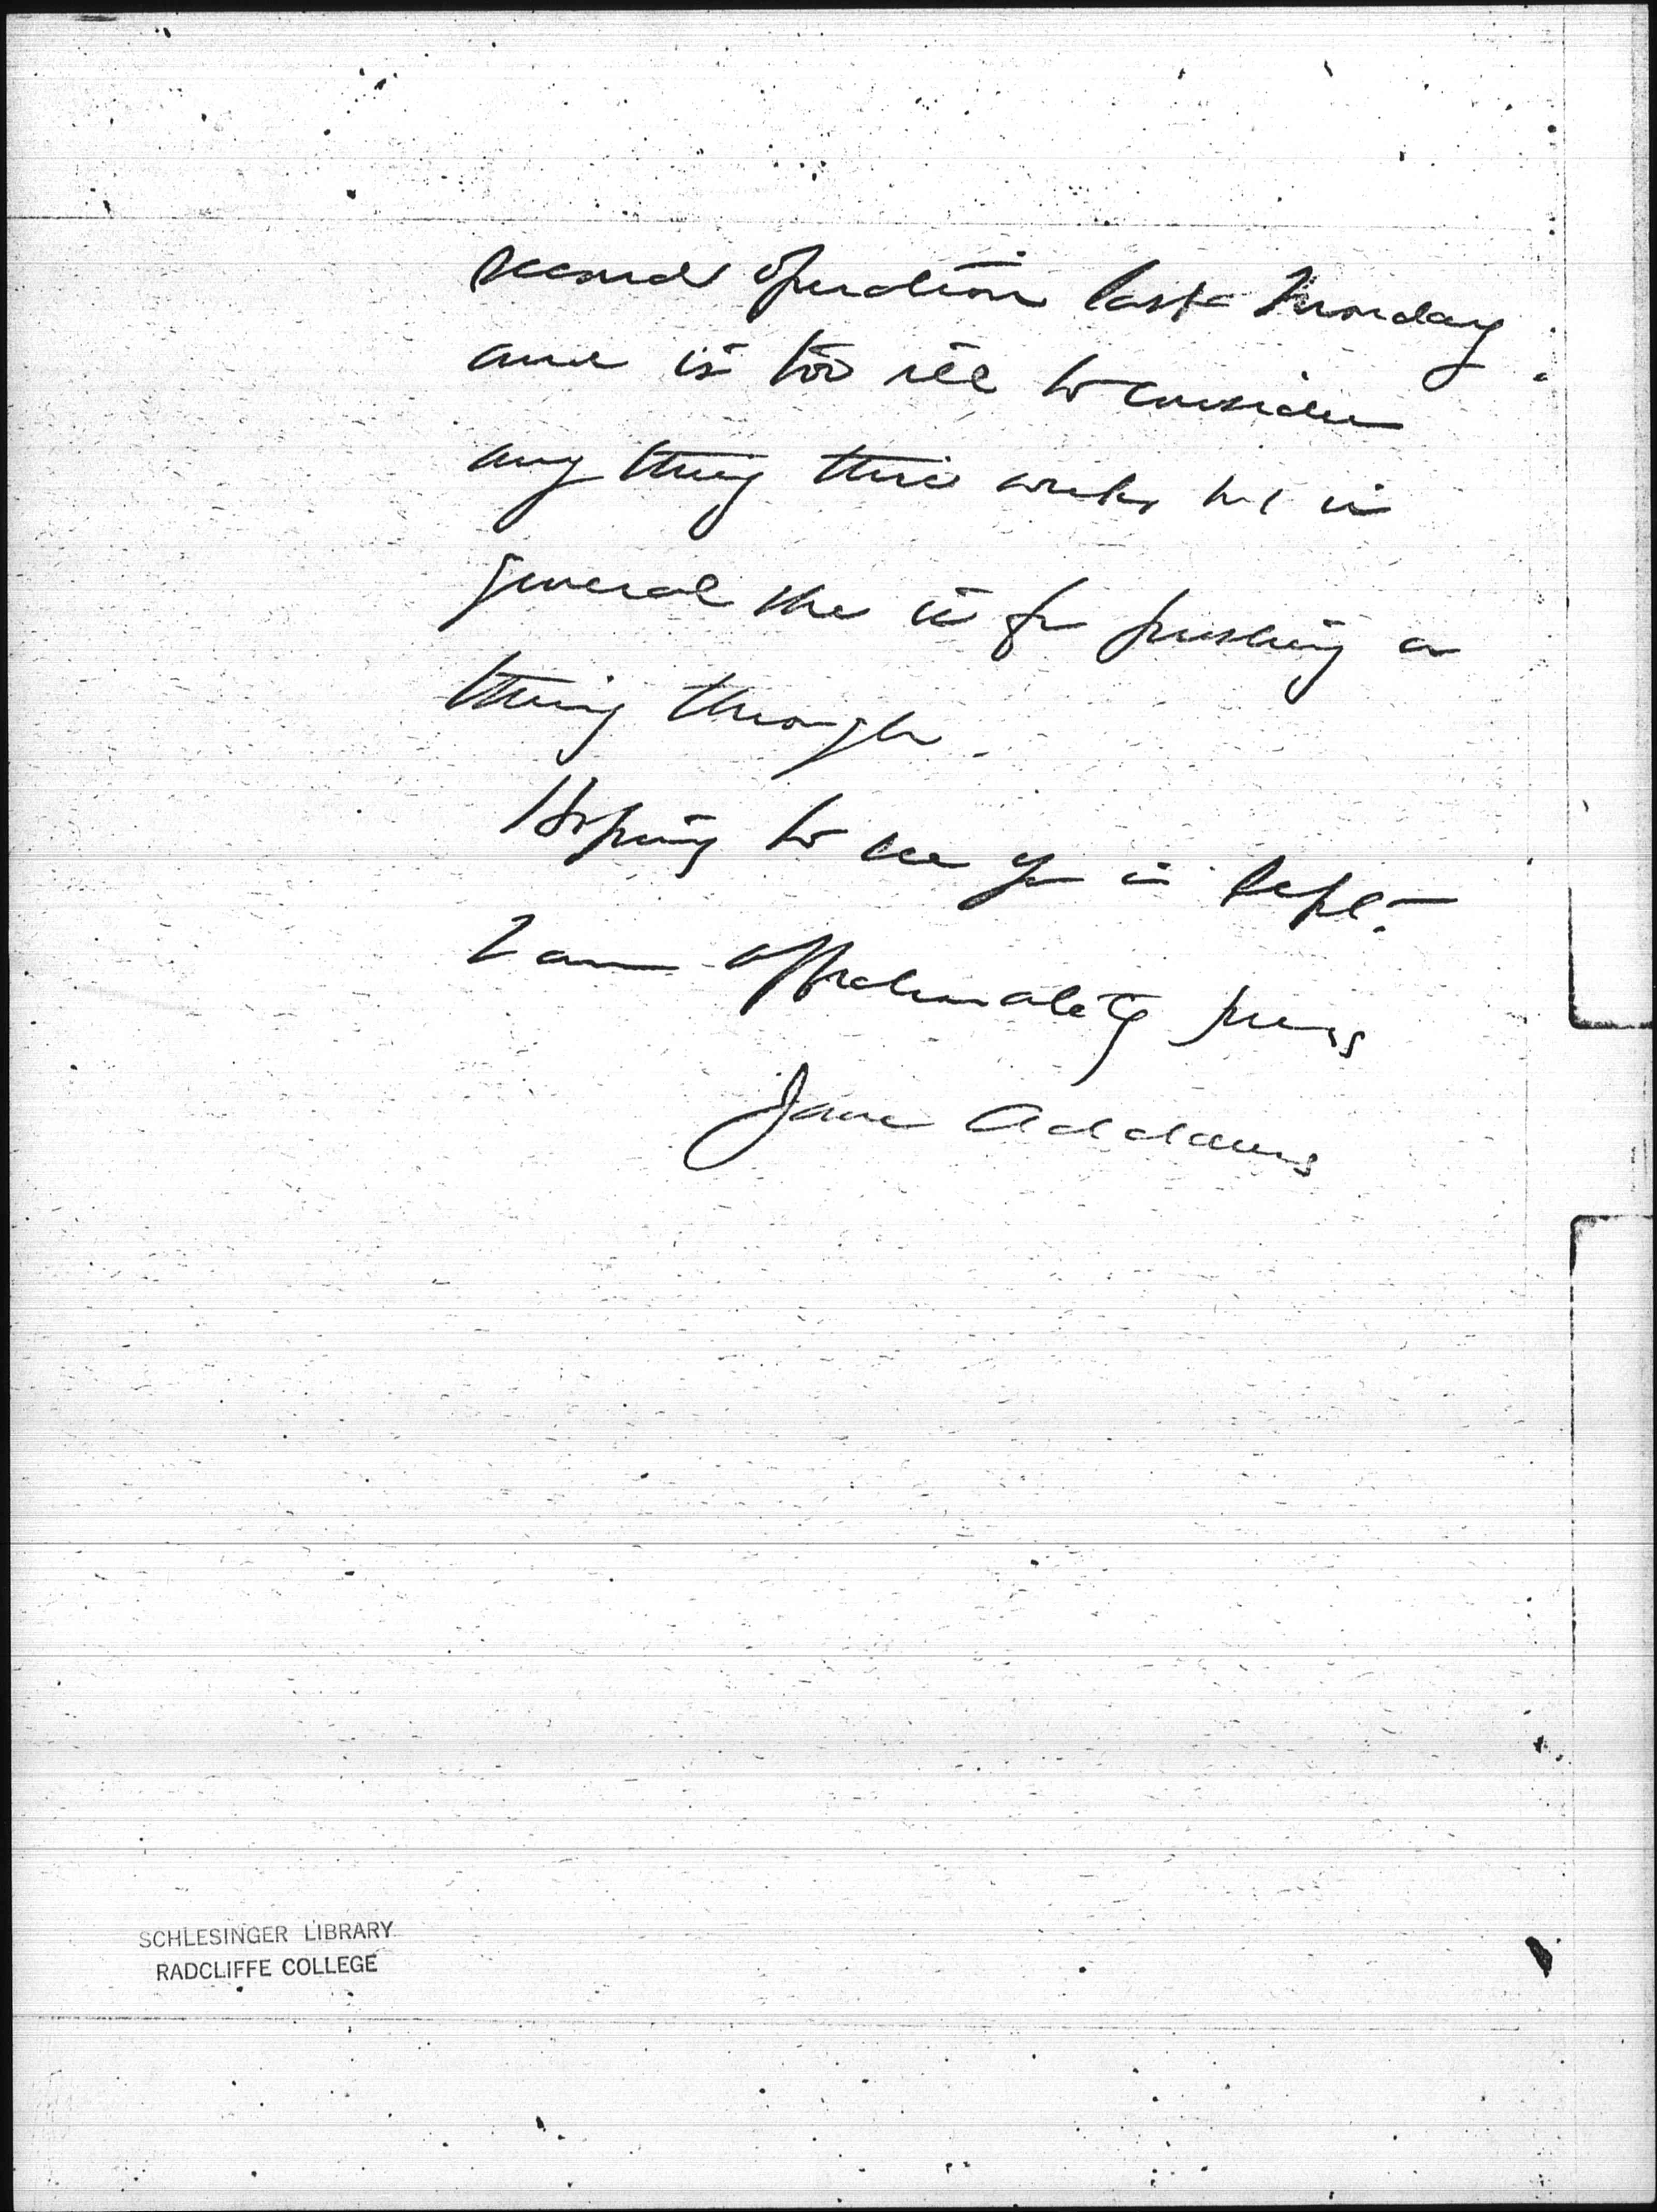 second operation last Monday
and is too ill to consider
any thing this week, but in
general she is for pushing a
thing through.
Hoping to see you in Sept.
I am affectionately yours
Jane Addams
SCHLESINGER LIBRARY
RADCLIFFE COLLEGE